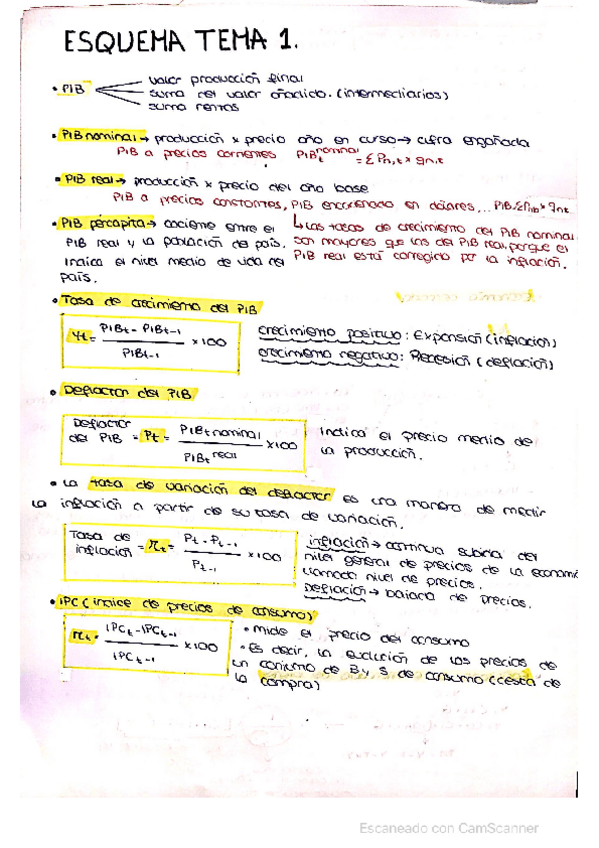 ESQUEMA TEMA 1.
• PIB
valor producción final
suma del valor añadido. (intermediarios)
suma rentas
• PIB nominal → producción x precio año en curso → cifra engañada
PIB a precios corrientes PIBt nominal = Σ Pn,t × qn,t
• PIB real → producción x precio del año base
PIB a precios constantes, PIB encadenado en dólares,...
• PIB percapita → cociente entre el
PIB real y la población del país.
Indica el nivel medio de vida del
país.
↳ Las tasas de crecimiento del PIB nominal
son mayores que las del PIB real, porque el
PIB real está corregido por la inflación.
• Tasa de crecimiento del PIB
Yt = PIBt - PIBt-1 / PIBt-1 x100
crecimiento positivo: Expansión (inflación)
crecimiento negativo: Recesión (deflación)
• Deflactor del PIB
Deflactor del PIB = Pt = PIBt nominal / PIBt real x100
Indica el precio medio de
la producción.
• La tasa de variación del deflactor es una manera de medir
la inflación a partir de su tasa de variación.
Tasa de inflación = πt = Pt - Pt-1 / Pt-1 x100
inflación → continua subida del
nivel general de precios de la economí
llamado nivel de precios.
Deflación → bajada de precios.
• IPC (índice de precios de consumo)
πt = IPCt - IPCt-1 / IPCt-1 x100
• Mide el precio del consumo
• Es decir, la evolución de los precios de
un conjunto de B y S de consumo (cesta de
la compra)
Escaneado con CamScanner